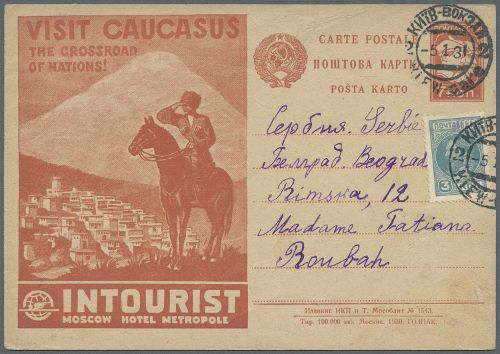 VISIT CAUCASUS
THE CROSSROAD
OF NATIONS!
INTOURIST
MOSCOW HOTEL METROPOLE
CARTE POSTALE
ПОШТОВА КАРТКА
POŜTA KARTO
КИЇВ-ВОКЗАЛ
-5.1.31
KIEW-Gare
Сербия. Serbie
Белград. Beograd
Rimska, 12
Madame Tatiana
Roubah
ПОЧТА
3
Издание НКП и Т. Мособлит № 1543.
Тир. 100.000 экз. Москва. 1930. ГОЗНАК.